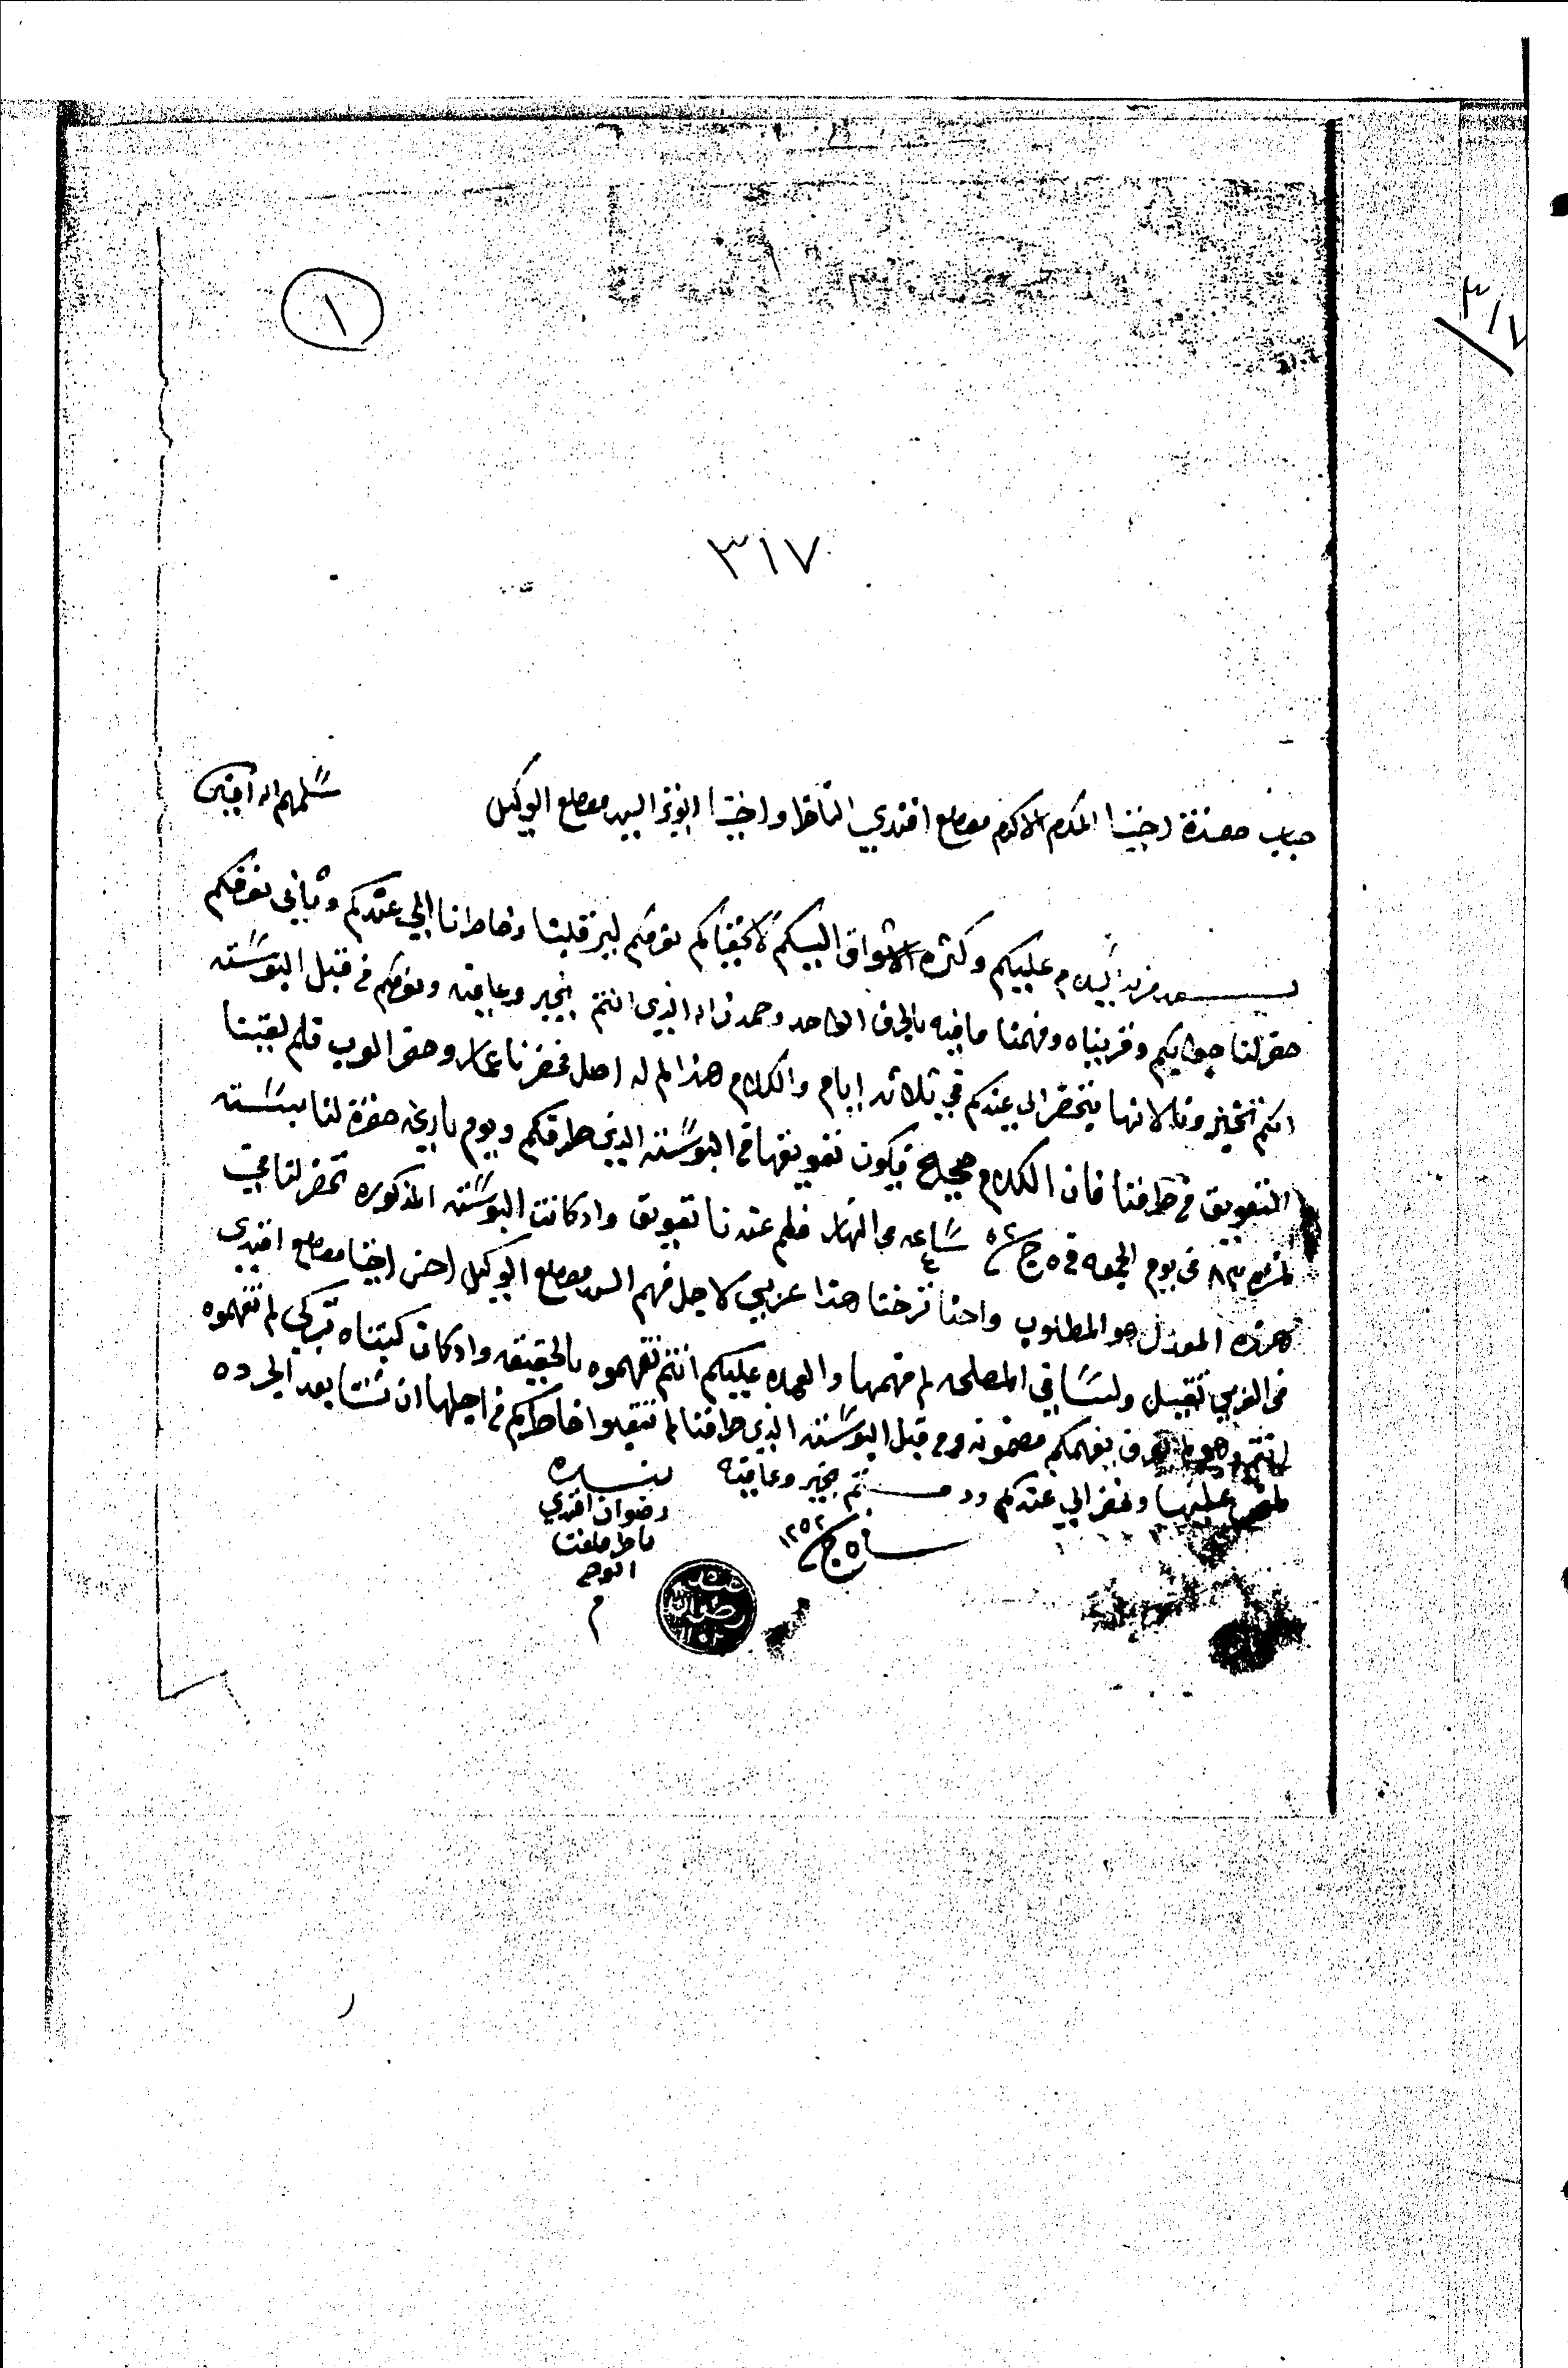 ١
٣١٧
٣١٧
جناب حضرة اخينا المكرم الاكرم مصطفى افندي الناظر واخينا العزيز السيد مصطفى الوكيل سلمهم الله امين
بعد مزيد السلام عليكم وكثرة الاشواق اليكم لا يخفاكم نعرفكم ليرتقلبنا وخاطرنا الي عندكم وثاني نعرفكم
حضر لنا جوابكم وقريناه وفهمنا مافيه بالحرف الواحد وحمدنا الله الذي انتم بخير وعافيه ونعرفكم من قبل البوسته
انكم تخبرونا لانها يتحضر الي عندكم في ثلاثه ايام والكلام هذا لم له اصل وحق الرب فلم لقينا
التعويق في طرفنا فان الكلام صحيح فيكون تعويقها في البوسته الذي طرفكم ويوم تاريخه حضرة لنا بسته
نمره ٨٣ في يوم الجمعه في ٥ ج سنه ٥٢ ساعه ٤ من النهار فلم عندنا تعويق واذ كانت البوسته المذكوره تحضر لنا في
هذه المعدل هو المطلوب واحنا شرحنا هذا عربي لاجل فهم السيد مصطفى الوكيل احسن اخينا مصطفى افندي
في العربي ثقيل ولسا في المصلحه لم فهمها والعهده عليكم انتم تفهموه بالحقيقه واذ كان كتبناه تركي لم تفهموه
انتم وهو لم يعرف يفهمكم مضمونه ومن قبل البوسته الذي طرفنا لم تقيدوا خاطركم من اجلها ان شا الله بعد الجرده
عليها ونحضر الي عندكم ودمتم بخير وعافيه
في ٥ ج سنه ١٢٥٢
رضوان افندي
ناظر
الوجه
م